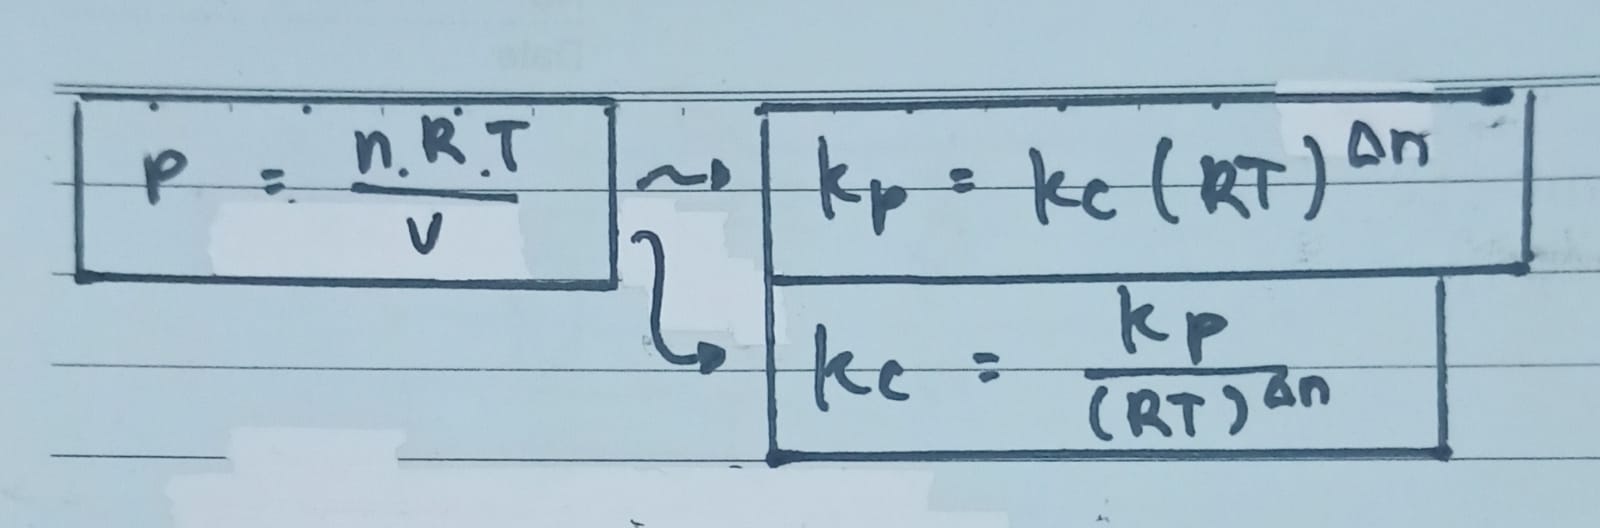 p = n.R.T / V ⇝ kp = kc (RT)^Δn
kc = kp / (RT)^Δn